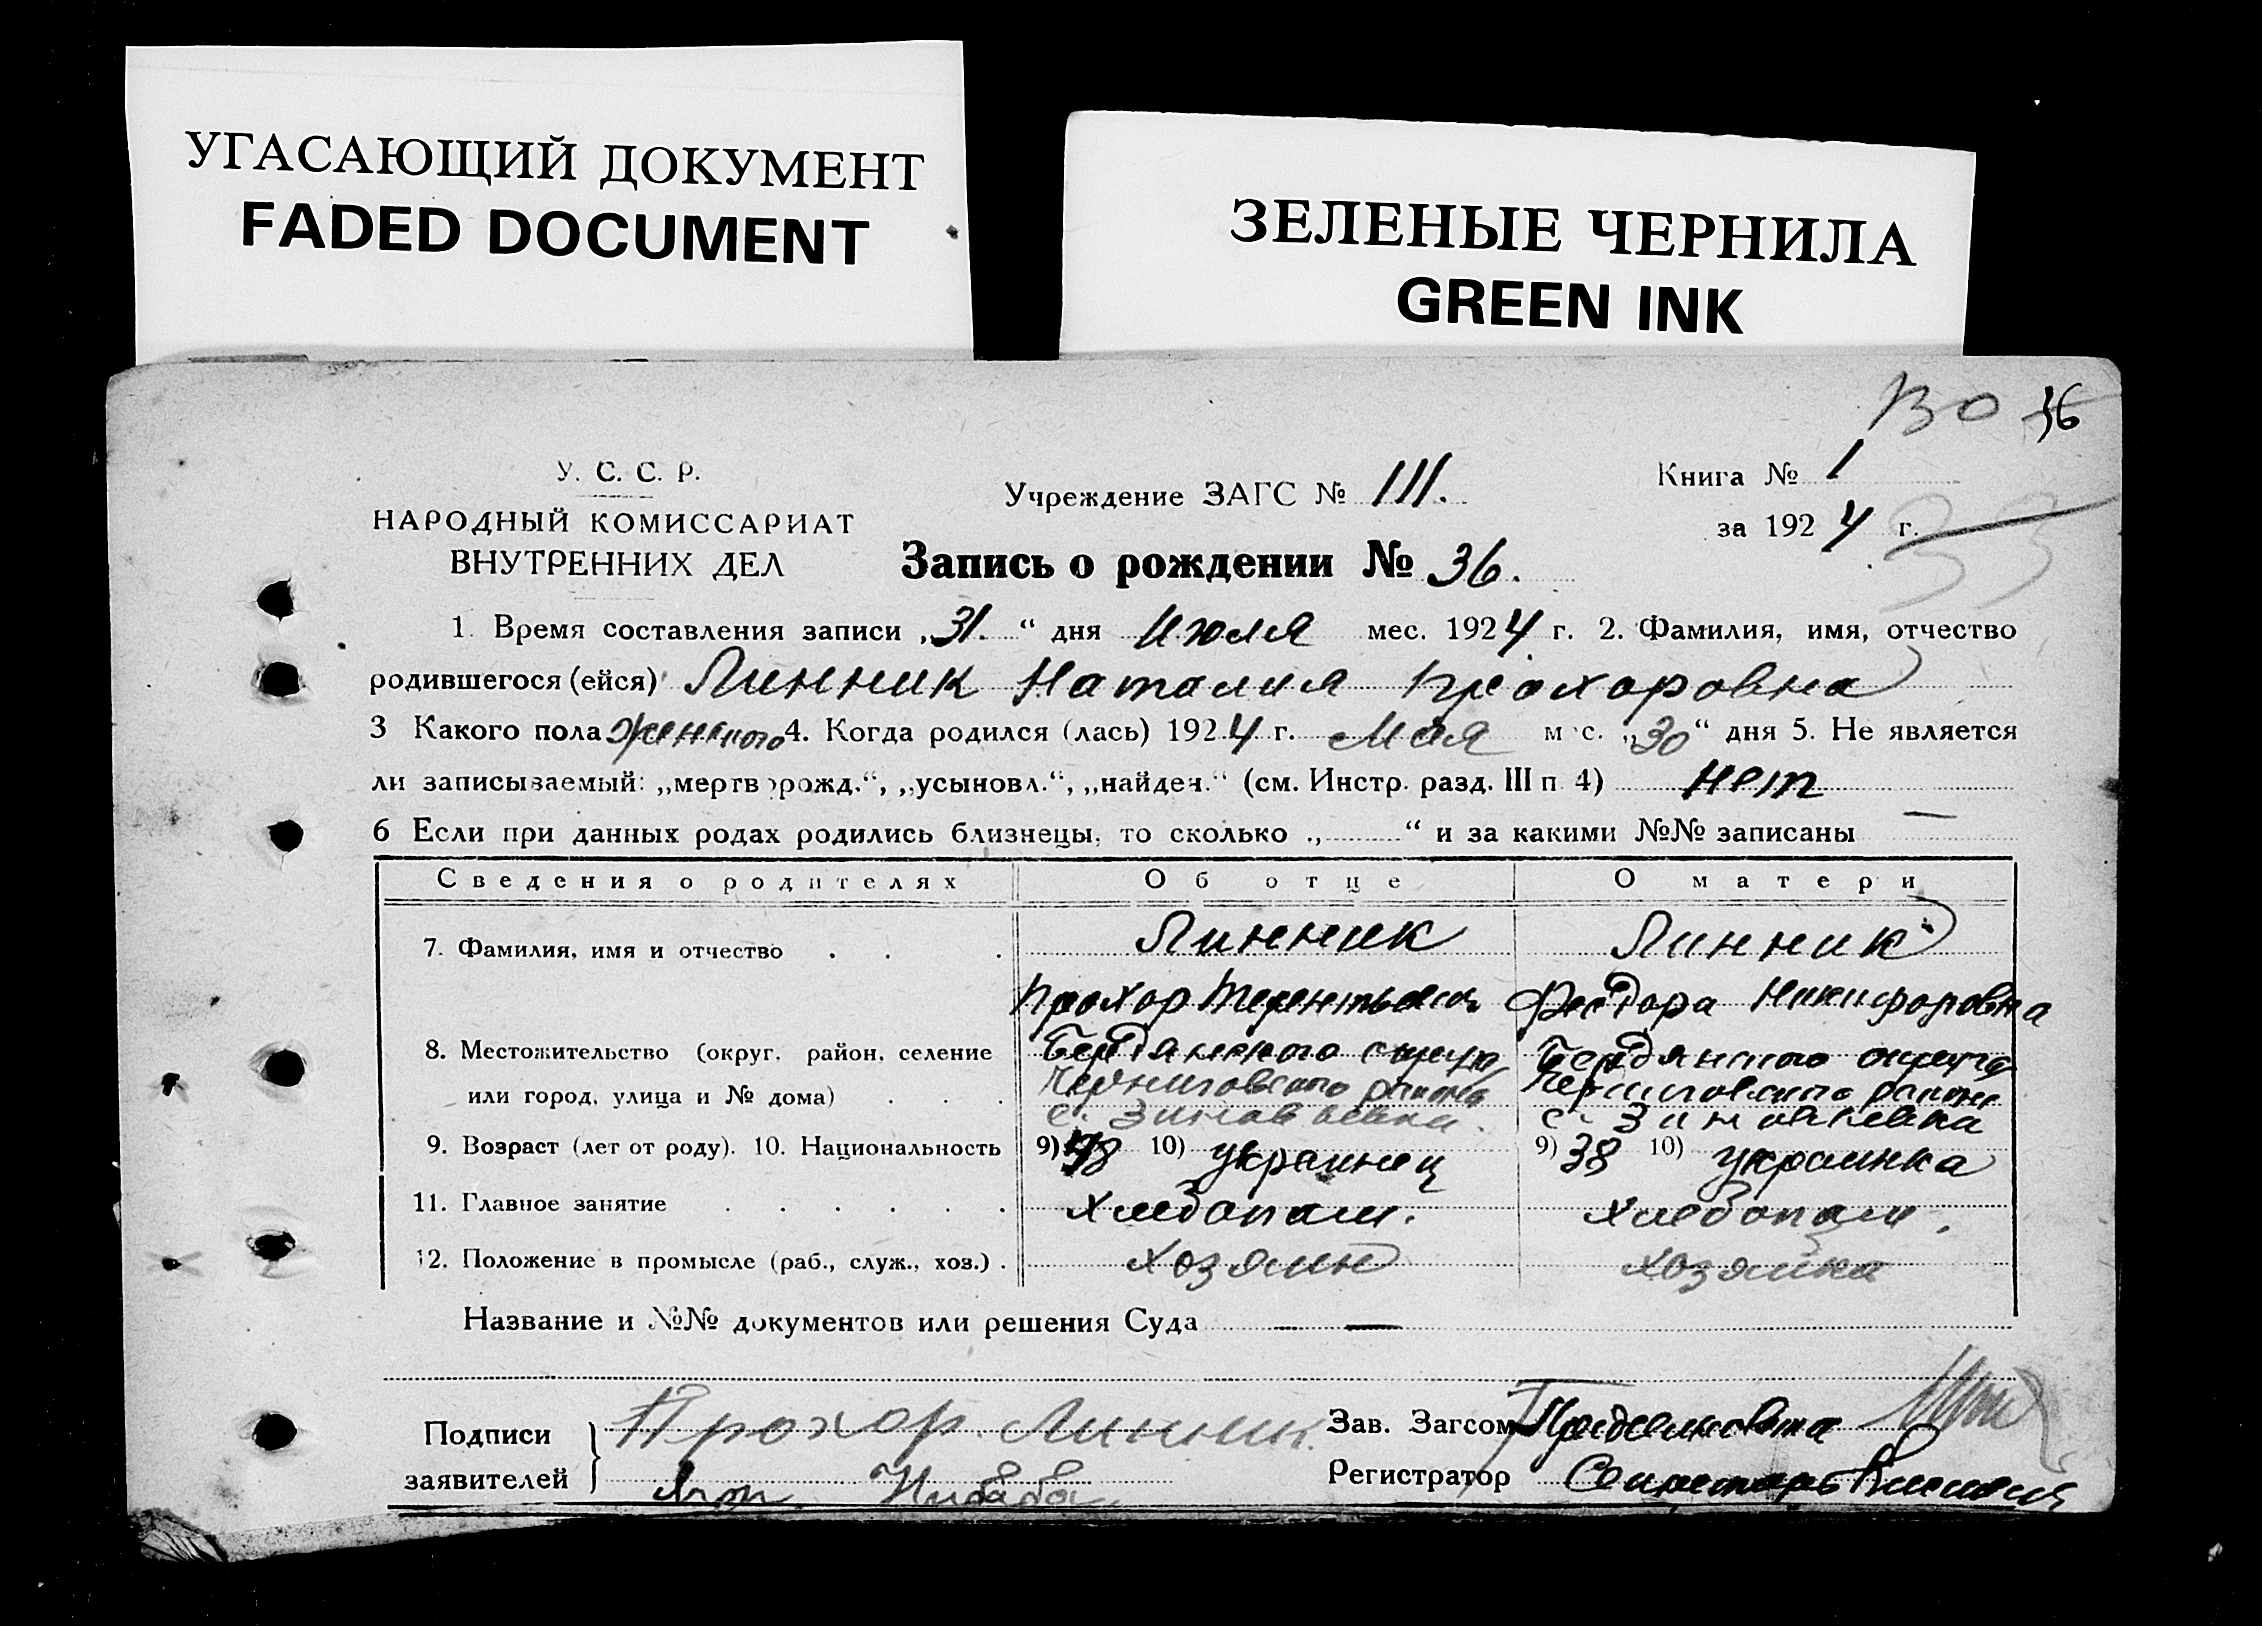 УГАСАЮЩИЙ ДОКУМЕНТ
FADED DOCUMENT
ЗЕЛЕНЫЕ ЧЕРНИЛА
GREEN INK
36
У. С. С. Р.
НАРОДНЫЙ КОМИССАРИАТ
ВНУТРЕННИХ ДЕЛ
Учреждение ЗАГС № III.
Книга № 1
за 1924 г.
33
Запись о рождении № 36.
1. Время составления записи „31.“ дня Июля мес. 1924 г. 2. Фамилия, имя, отчество
родившегося (ейся) Линник Наталия Прохоровна
3 Какого пола женского 4. Когда родился (лась) 1924 г. Мая м с. „30“ дня 5. Не является
ли записываемый: „мертворожд.“, „усыновл.“, „найден.“ (см. Инстр. разд. III п. 4) нет
6 Если при данных родах родились близнецы, то сколько „ “ и за какими №№ записаны —
Сведения о родителях Об отце О матери
7. Фамилия, имя и отчество Линник Линник
Прохор Терентьевич Феодора Никифоровна
8. Местожительство (округ, район, селение Бердянского округа Бердянского округа
или город, улица и № дома) Черниговского района Черниговского района
с. Зиновьевка с. Зиновьевка
9. Возраст (лет от роду). 10. Национальность 9) 48 10) украинец 9) 38 10) украинка
11. Главное занятие хлебопаш. хлебопаш.
12. Положение в промысле (раб., служ., хоз.) хозяин хозяйка
Название и №№ документов или решения Суда — —
Подписи
заявителей
Прохор Линник
Зав. Загсом
Регистратор Секретарь